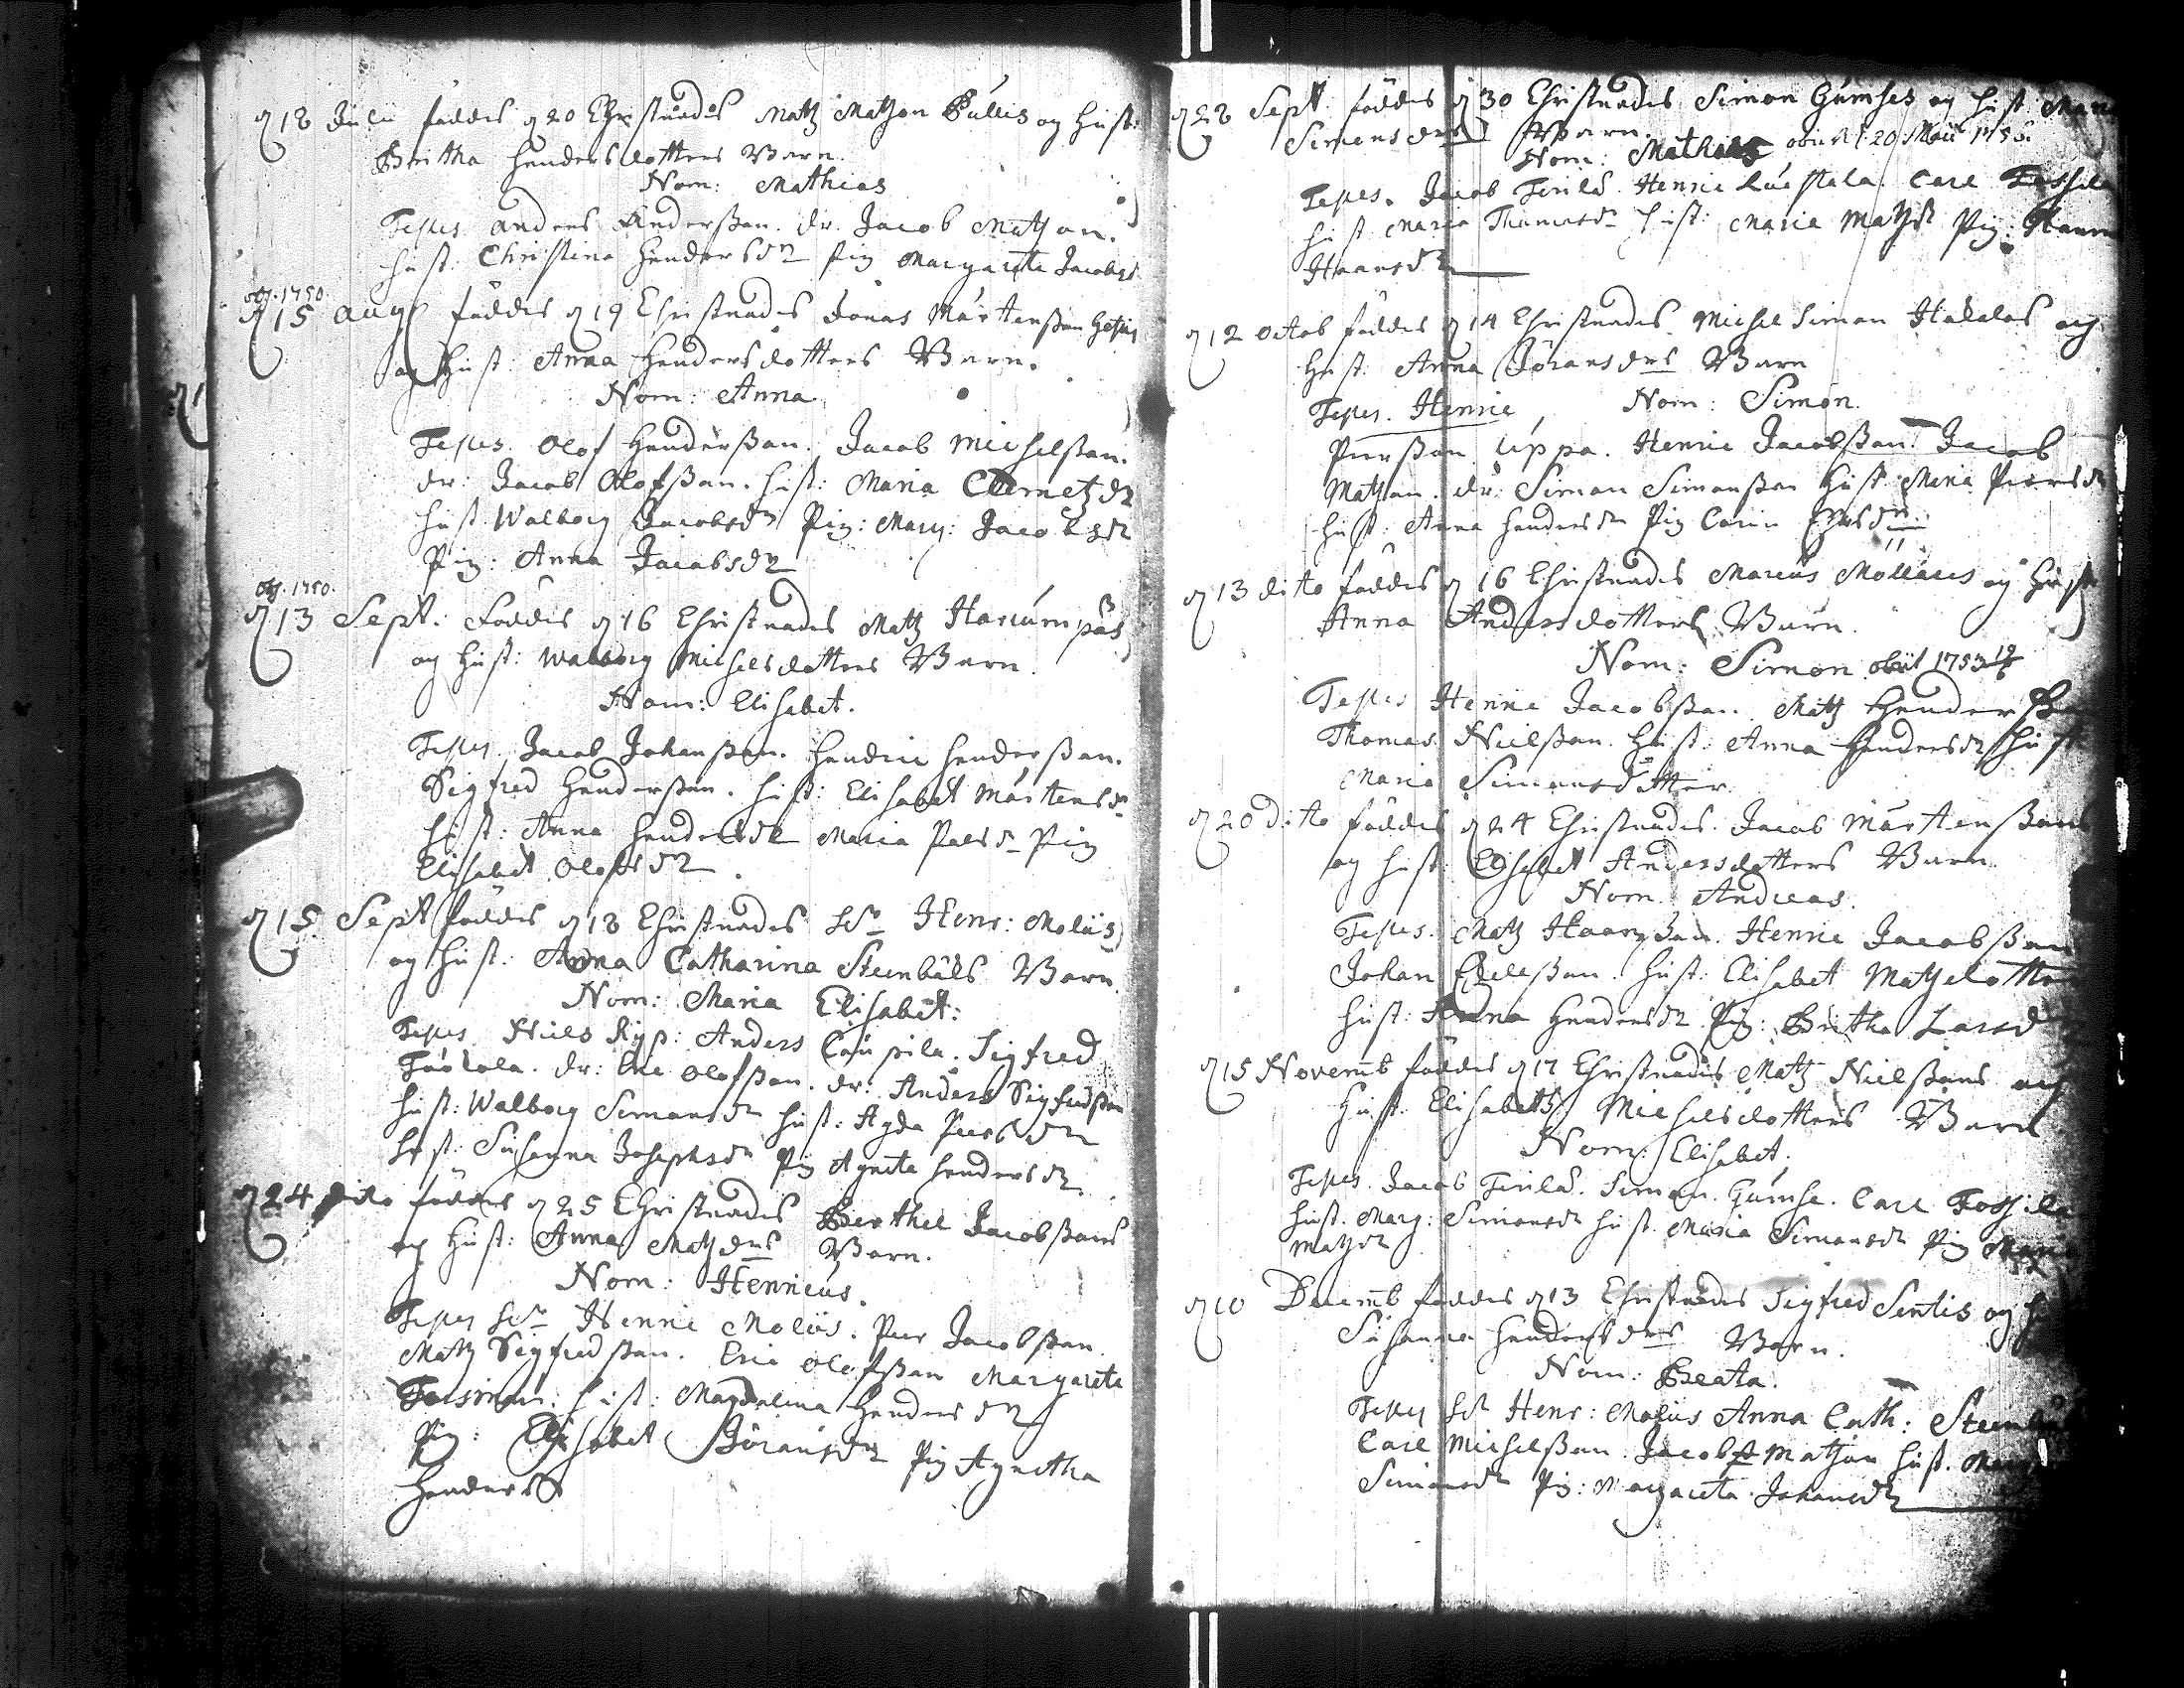 d 18 Julii föddes d 20 Christnades Matz Matzon Pullis og Hust:
Britha Hendersdotters Barn.
Nom: Mathias
Testes Anders Anderßon. dr. Jacob Matzon.
hust. Christina Hendersdr Pig Margareta Jacobsd
1750.
d 15 Aug föddes d 19 Christnades Jonas Mårtenßon
og Hust: Anna Hendersdotters Barn.
Nom: Anna
Testes. Olof Henderßon. Jacob Michelßon.
dr: Jacob Olofßon. hust: Maria Clemetzdr
hust. Walborg Jacobsdr Pig: Marg: Jacobsdr
Pig: Anna Jacobsdr
1750.
d 13 Sept. föddes d 16 Christnades Matz
og Hust: Walborg Michelsdotters Barn.
Nom: Elisabet.
Testes. Jacob Johanßon. Hendric Henderßon.
Sigfred Henderßon. hust: Elisabet Mårtensdr
hust: Anna Hendersdr Maria Pålsdr Pig
Elisabet Olofsdr.
d 15 Sept föddes d 18 Christnades Hr Henr: Moliis
og Hust: Anna Catharina Steenbäks Barn.
Nom: Maria Elisabet:
Testes Niels Ryp: Anders Caupila. Sigfred
dr: Eric Olofßon. dr: Anders Sigfredßon
hust: Walborg Simonsdr hust: Agda Peersdr
hust: Susanna Josephsdr Pig Agneta Hendersdr
d 24 dito föddes d 25 Christnades Berthel Jacobßons
og Hust: Anna Matzdrs Barn.
Nom: Henricus.
Testes Hr Henric Molius. Peer Jacobßon.
Matz Sigfredßon. Eric Olofßon Margareta
hust: Magdalena Hendersdr
Pig: Elisabet Göransdr Pig Agnetha
Hendersdr
d 28 Sept. föddes d 30 Christnades Simon Gumses og Hust
Simonsdrs Barn.
Nom: Mathias obiit d 20 Maii
Testes. Jacob Finlä. Henric. Carl
hust. Maria Thomasdr hust: Maria Matzdr Pig:
Haansdr
d 12 Octob föddes d 14 Christnades Michel Simon Hakalas og
Hust. Anna Göransdrs Barn
Nom: Simon.
Testes. Henric
Peerßon Uppa. Henric Jacobßon. Jacob
Matzon. dr: Simon Simonßon hust Maria Peersdr
hust: Anna Hendersdr Pig Carin
d 13 dito föddes d 16 Christnades Marcus Mollaris og Hust
Anna Andersdotters Barn.
Nom: Simon obiit 1753
Testes Henric Jacobßon Matz Henderßon
Thomas Nielßon. Hust: Anna Hendersdr hust
Maria Simonsdotter.
d 20 Dito föddes d 24 Christnades. Jacob Mårtenßons
og hust. Elisabet Andersdotters Barn.
Nom. Andreas.
Testes. Matz Haanßon. Henric Jacobßon
Johan hust: Elisabet Matzdotter
hust: Anna Hendersdr. Pig: Britha Larsd
d 15 Novemb föddes d 17 Christnades Matz Nielßons og
Hust. Elisabeth Michelsdotters Barn
Nom: Elisabet.
Testes. Jacob Finlä. Simon Gumse. Carl
hust. Marg: Simonsdr hust. Maria Simonsdr Pig
Matzdr
d 10 Decemb föddes d 13 Christnades Sigfred Sentis og
Susanna Hendersdrs Barn.
Nom: Beata.
Testes Hr Henr: Molius Anna Cath:
Carl Michelßon. Jacob Matzon hust.
Simonsdr Pig: Margareta Johansdr